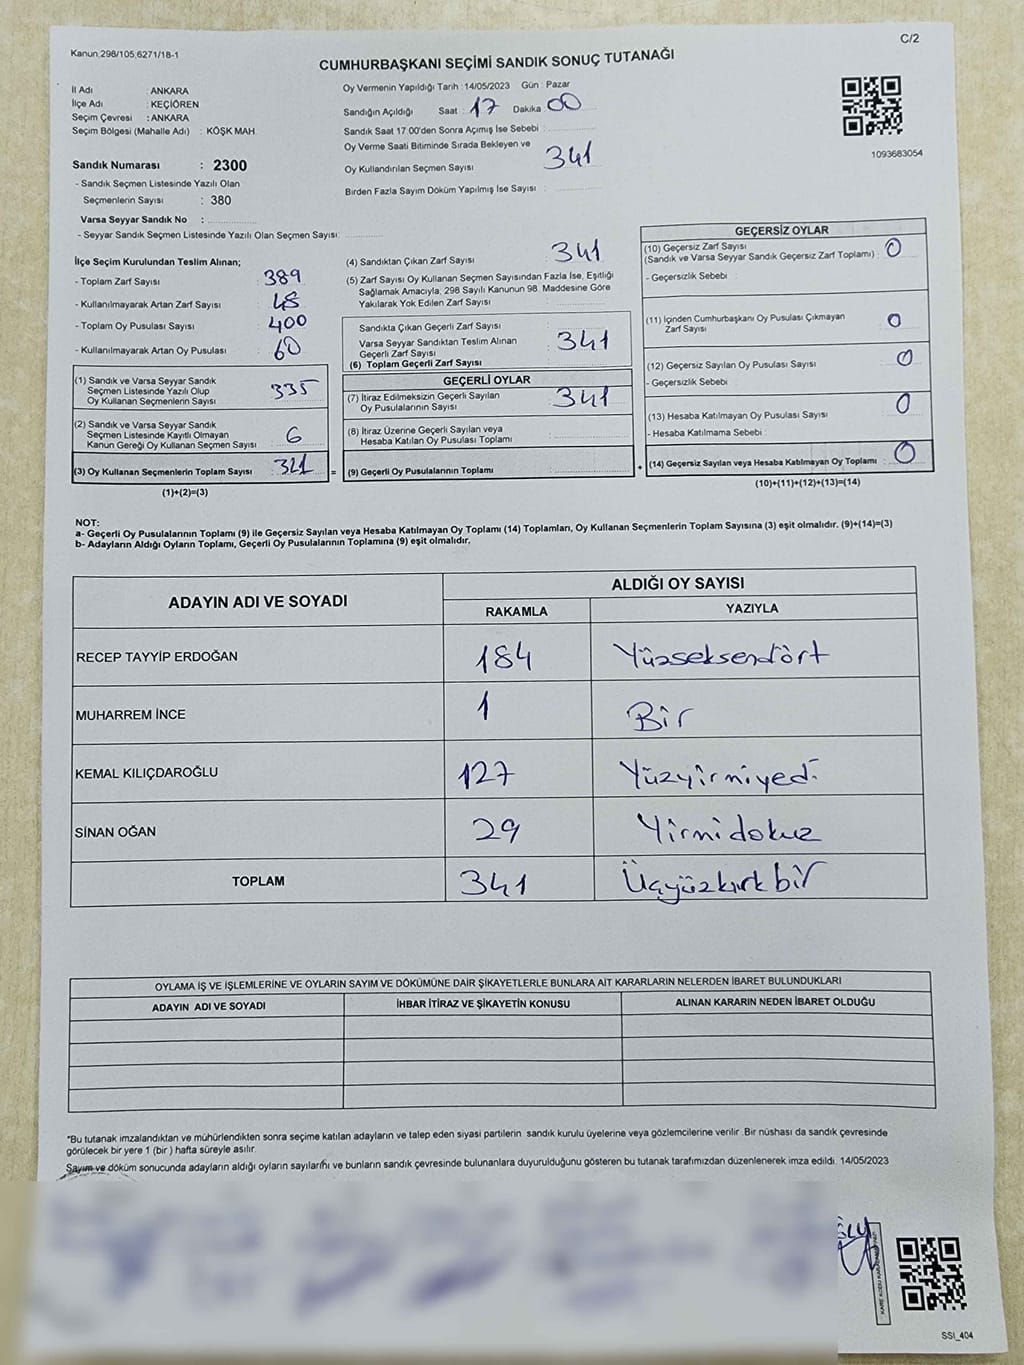 Kanun,298/105,6271/18-1
C/2
CUMHURBAŞKANI SEÇİMİ SANDIK SONUÇ TUTANAĞI
İl Adı : ANKARA
İlçe Adı : KEÇİÖREN
Seçim Çevresi : ANKARA
Seçim Bölgesi (Mahalle Adı) : KÖŞK MAH.
Sandık Numarası : 2300
- Sandık Seçmen Listesinde Yazılı Olan
Seçmenlerin Sayısı : 380
Varsa Seyyar Sandık No :
- Seyyar Sandık Seçmen Listesinde Yazılı Olan Seçmen Sayısı:
Oy Vermenin Yapıldığı Tarih : 14/05/2023 Gün : Pazar
Sandığın Açıldığı Saat : 17 Dakika : 00
Sandık Saat 17.00'den Sonra Açımış İse Sebebi :
Oy Verme Saati Bitiminde Sırada Bekleyen ve
Oy Kullandırılan Seçmen Sayısı : 341
Birden Fazla Sayım Döküm Yapılmış İse Sayısı :
1093683054
İlçe Seçim Kurulundan Teslim Alınan;
- Toplam Zarf Sayısı : 389
- Kullanılmayarak Artan Zarf Sayısı : 48
- Toplam Oy Pusulası Sayısı : 400
- Kullanılmayarak Artan Oy Pusulası : 60
(1) Sandık ve Varsa Seyyar Sandık
Seçmen Listesinde Yazılı Olup
Oy Kullanan Seçmenlerin Sayısı : 335
(2) Sandık ve Varsa Seyyar Sandık
Seçmen Listesinde Kayıtlı Olmayan
Kanun Gereği Oy Kullanan Seçmen Sayısı : 6
(3) Oy Kullanan Seçmenlerin Toplam Sayısı : 321
(1)+(2)=(3)
(4) Sandıktan Çıkan Zarf Sayısı : 341
(5) Zarf Sayısı Oy Kullanan Seçmen Sayısından Fazla İse, Eşitliği
Sağlamak Amacıyla, 298 Sayılı Kanunun 98. Maddesine Göre
Yakılarak Yok Edilen Zarf Sayısı :
Sandıkta Çıkan Geçerli Zarf Sayısı
Varsa Seyyar Sandıktan Teslim Alınan
Geçerli Zarf Sayısı
(6) Toplam Geçerli Zarf Sayısı : 341
GEÇERLİ OYLAR
(7) İtiraz Edilmeksizin Geçerli Sayılan
Oy Pusulalarının Sayısı : 341
(8) İtiraz Üzerine Geçerli Sayılan veya
Hesaba Katılan Oy Pusulası Toplamı :
= (9) Geçerli Oy Pusulalarının Toplamı :
GEÇERSİZ OYLAR
(10) Geçersiz Zarf Sayısı
(Sandık ve Varsa Seyyar Sandık Geçersiz Zarf Toplamı) : 0
- Geçersizlik Sebebi :
(11) İçinden Cumhurbaşkanı Oy Pusulası Çıkmayan
Zarf Sayısı : 0
(12) Geçersiz Sayılan Oy Pusulası Sayısı : 0
- Geçersizlik Sebebi :
(13) Hesaba Katılmayan Oy Pusulası Sayısı : 0
- Hesaba Katılmama Sebebi :
+ (14) Geçersiz Sayılan veya Hesaba Katılmayan Oy Toplamı : 0
(10)+(11)+(12)+(13)=(14)
NOT:
a- Geçerli Oy Pusulalarının Toplamı (9) ile Geçersiz Sayılan veya Hesaba Katılmayan Oy Toplamı (14) Toplamları, Oy Kullanan Seçmenlerin Toplam Sayısına (3) eşit olmalıdır. (9)+(14)=(3)
b- Adayların Aldığı Oyların Toplamı, Geçerli Oy Pusulalarının Toplamına (9) eşit olmalıdır.
ADAYIN ADI VE SOYADI
ALDIĞI OY SAYISI
RAKAMLA YAZIYLA
RECEP TAYYİP ERDOĞAN 184 Yüzseksendört
MUHARREM İNCE 1 Bir
KEMAL KILIÇDAROĞLU 127 Yüzyirmiyedi
SİNAN OĞAN 29 Yirmidokuz
TOPLAM 341 Üçyüzkırkbir
OYLAMA İŞ VE İŞLEMLERİNE VE OYLARIN SAYIM VE DÖKÜMÜNE DAİR ŞİKAYETLERLE BUNLARA AİT KARARLARIN NELERDEN İBARET BULUNDUKLARI
ADAYIN ADI VE SOYADI İHBAR İTİRAZ VE ŞİKAYETİN KONUSU ALINAN KARARIN NEDEN İBARET OLDUĞU
*Bu tutanak imzalandıktan ve mühürlendikten sonra seçime katılan adayların ve talep eden siyasi partilerin sandık kurulu üyelerine veya gözlemcilerine verilir. Bir nüshası da sandık çevresinde
görülecek bir yere 1 (bir) hafta süreyle asılır.
Sayım ve döküm sonucunda adayların aldığı oyların sayılarını ve bunların sandık çevresinde bulunanlara duyurulduğunu gösteren bu tutanak tarafımızdan düzenlenerek imza edildi. 14/05/2023
SSİ_404